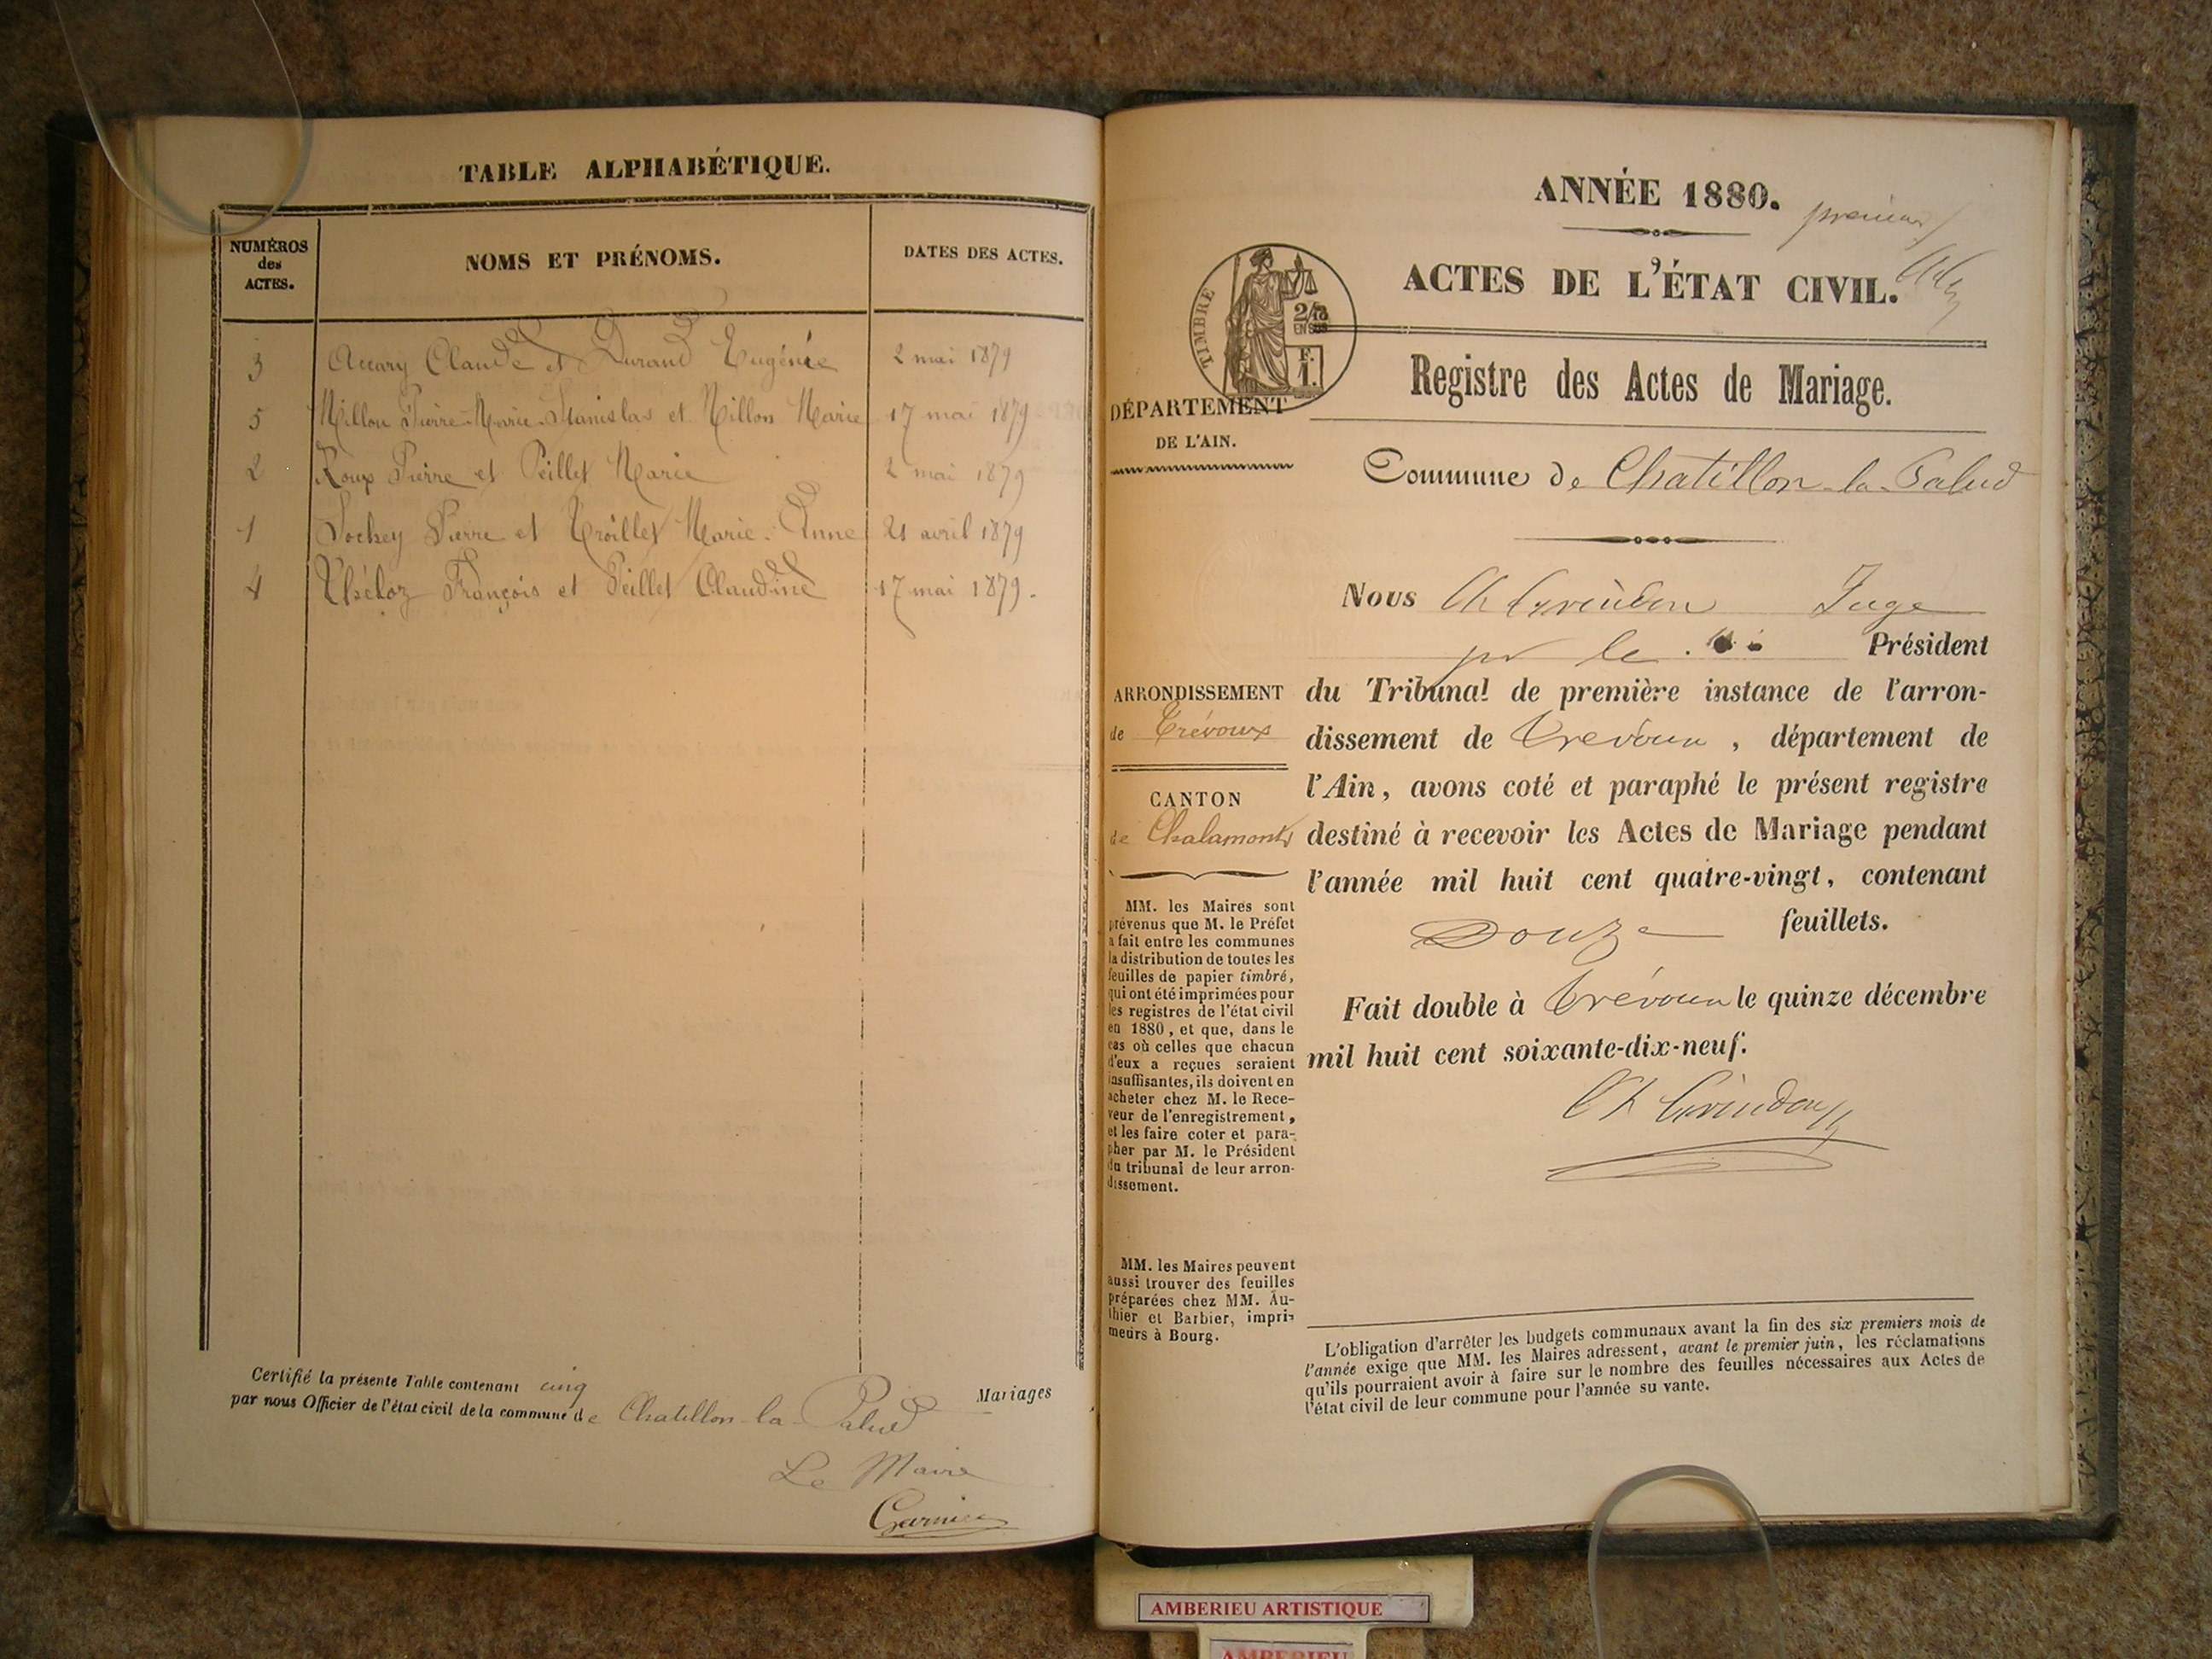 TABLE ALPHABÉTIQUE.
NUMÉROS
des
ACTES.
NOMS ET PRÉNOMS.
DATES DES ACTES.
3 Accary Claude et Durand Eugénie 2 mai 1879
5 Millon Pierre-Marie-Stanislas et Millon Marie 17 mai 1879
2 Roux Pierre et Peillet Marie 2 mai 1879
1 Sochey Pierre et Troillet Marie-Anne 21 avril 1879
4 François et Peillet Claudine 17 mai 1879.
Certifié la présente Table contenant cinq Mariages
par nous Officier de l'état civil de la commune de Chatillon-la-Palud
Le Maire
Garnier
ANNÉE 1880.
premier
ACTES DE L'ÉTAT CIVIL.
TIMBRE
2/10
EN SUS
F.
1.
Registre des Actes de Mariage.
DÉPARTEMENT
DE L'AIN.
Commune de Chatillon-la-Palud
Nous Ch Grindon Juge
pr le Président
du Tribunal de première instance de l'arron-
dissement de Trevoux, département de
l'Ain, avons coté et paraphé le présent registre
destiné à recevoir les Actes de Mariage pendant
l'année mil huit cent quatre-vingt, contenant
Douze feuillets.
Fait double à Trévoux le quinze décembre
mil huit cent soixante-dix-neuf.
Ch Grindon
ARRONDISSEMENT
de Trévoux
CANTON
de Chalamont
MM. les Maires sont
prévenus que M. le Préfet
a fait entre les communes
la distribution de toutes les
feuilles de papier timbré,
qui ont été imprimées pour
les registres de l'état civil
en 1880, et que, dans le
cas où celles que chacun
d'eux a reçues seraient
insuffisantes, ils doivent en
acheter chez M. le Rece-
veur de l'enregistrement,
et les faire coter et para-
pher par M. le Président
du tribunal de leur arron-
dissement.
MM. les Maires peuvent
aussi trouver des feuilles
préparées chez MM. Au-
thier et Barbier, impri-
meurs à Bourg.
L'obligation d'arrêter les budgets communaux avant la fin des six premiers mois de
l'année exige que MM. les Maires adressent, avant le premier juin, les réclamations
qu'ils pourraient avoir à faire sur le nombre des feuilles nécessaires aux Actes de
l'état civil de leur commune pour l'année su vante.
AMBERIEU ARTISTIQUE
AMBERIEU